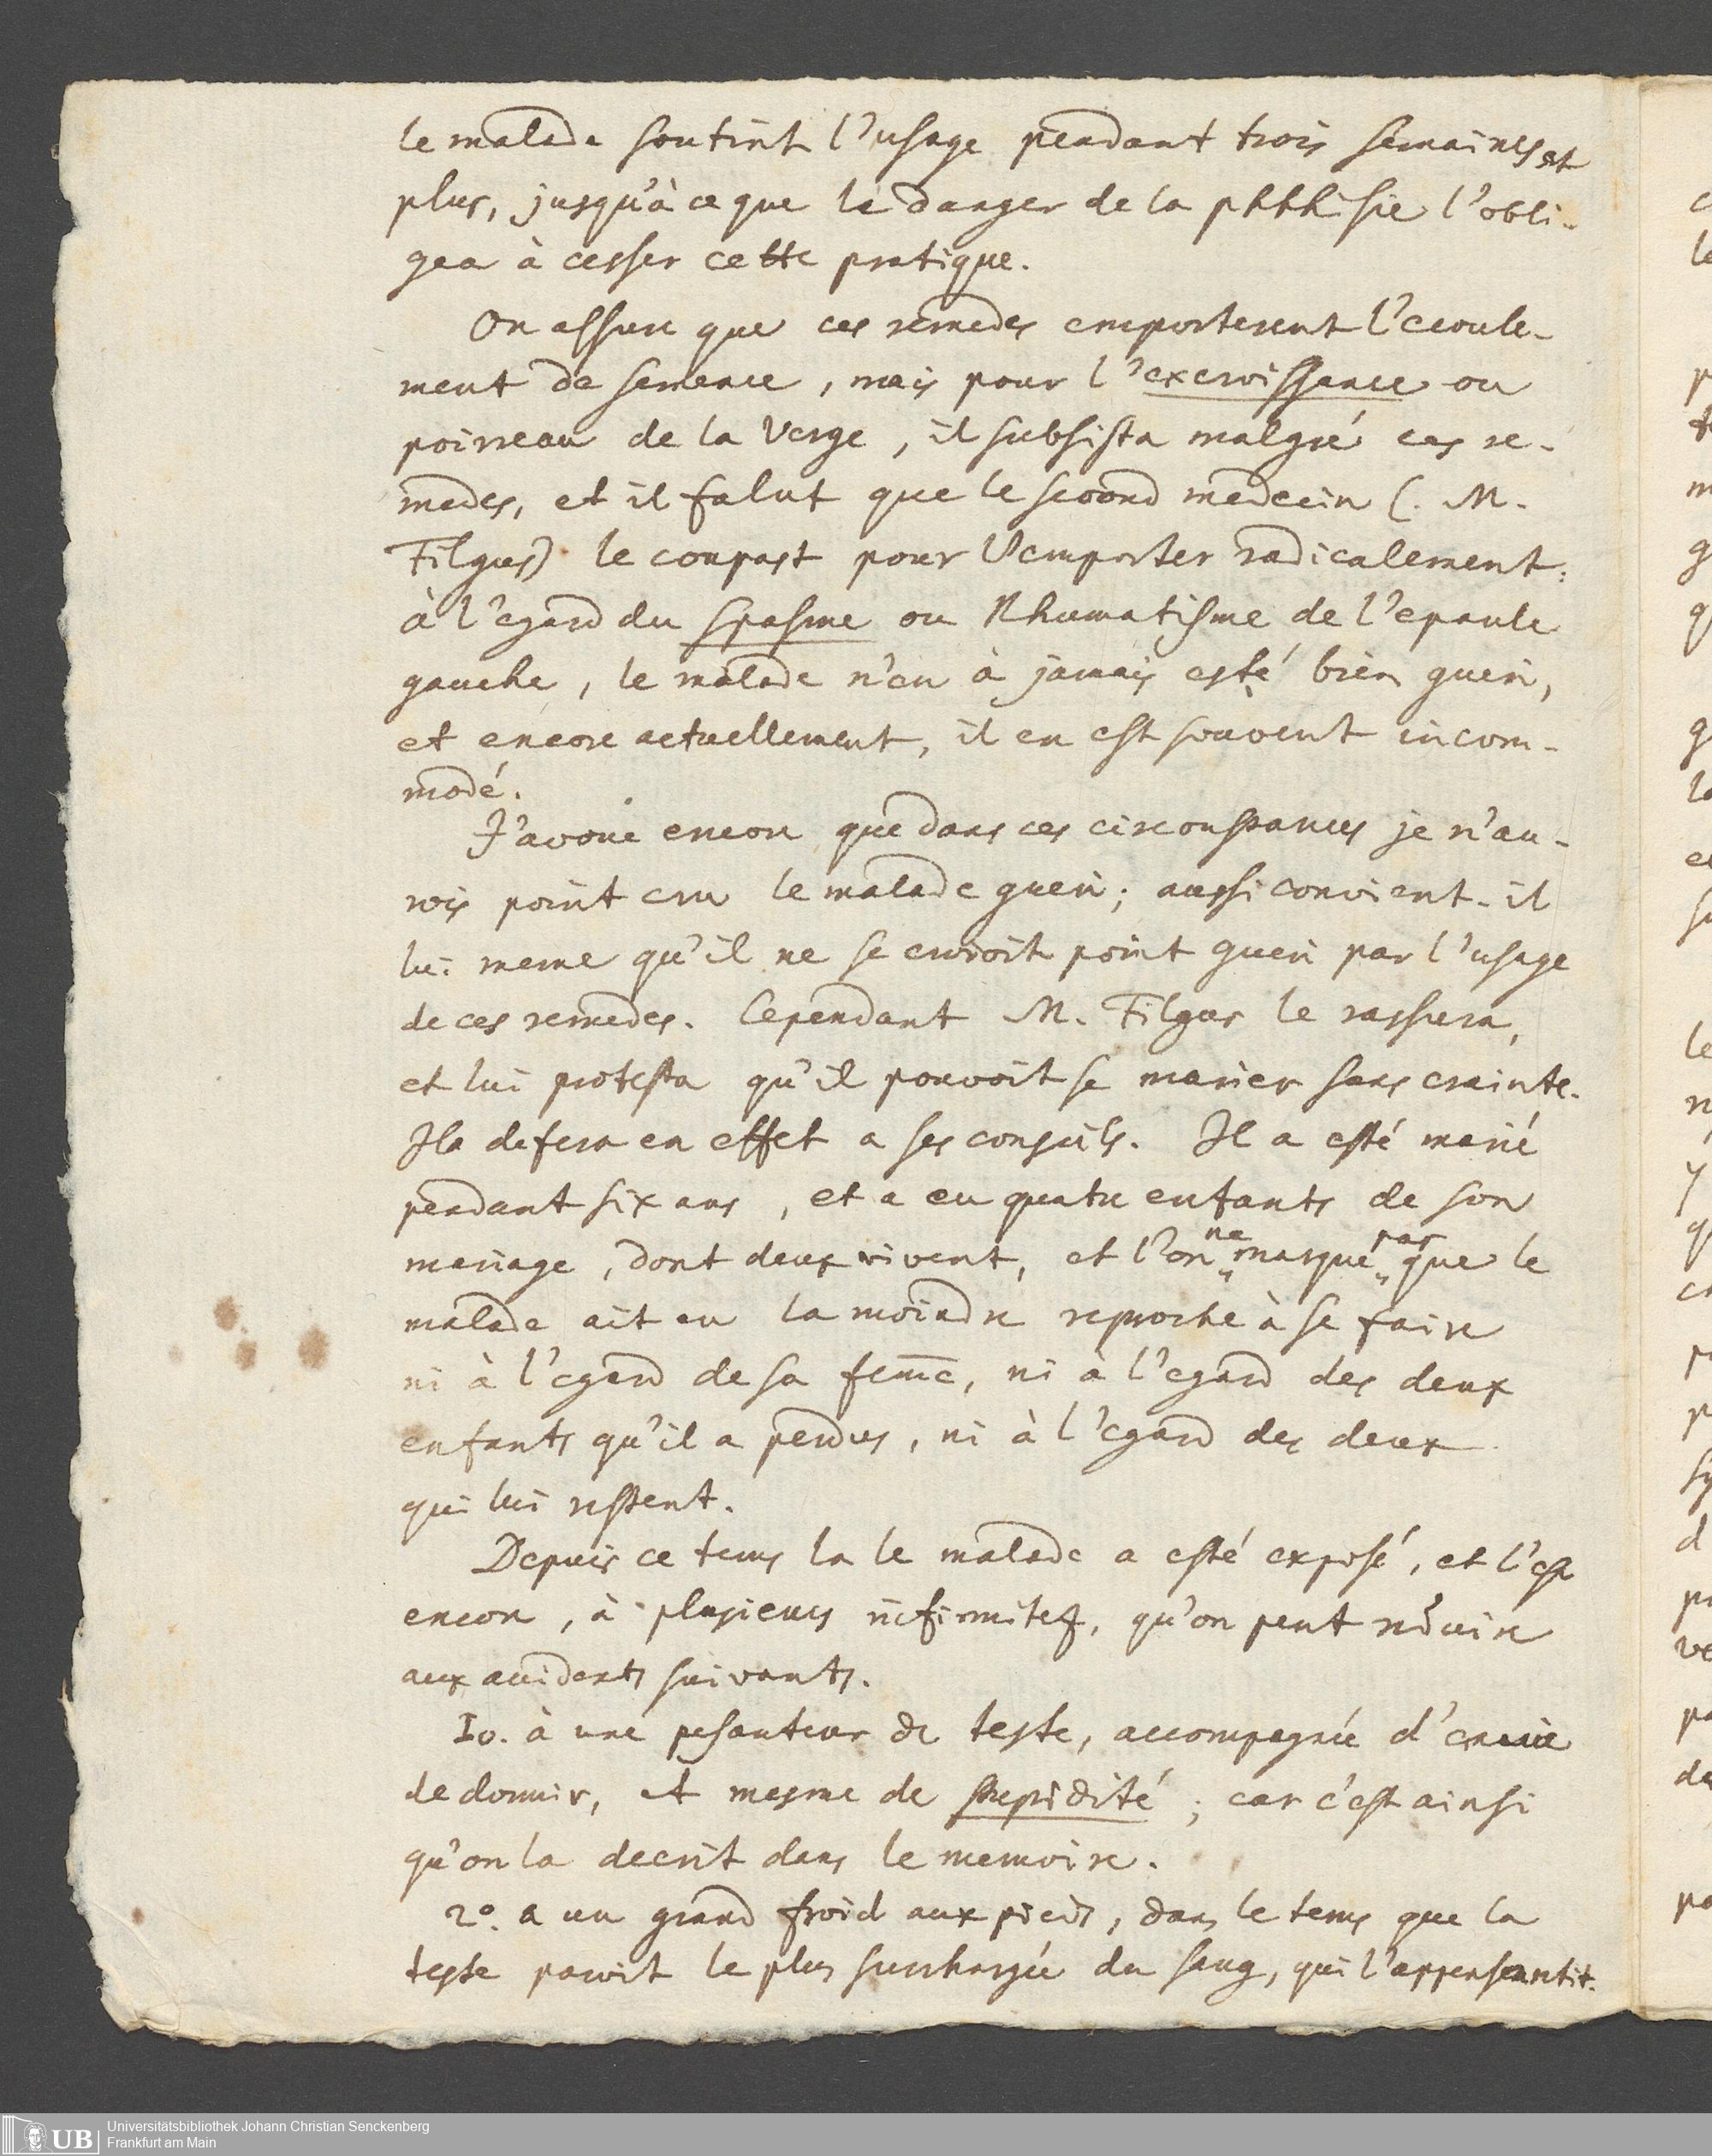 le malade soutint l'usage pendant trois semaines et
plus, jusqu'à ce que le danger de la phthisie l'obli-
gea à cesser cette pratique.
On assure que ces remedes emporterent l'ecoule-
ment de semence, mais pour l'excroissance ou
poirreau de la Verge, il subsista malgré ces re-
medes, et il falut que le second medecin (. M.
Filgus) le coupast pour l'emporter radicalement:
à l'egard du spasme ou Rhumatisme de l'epaule
gauche, le malade n'en à jamais esté bien gueri,
et encore actuellement, il en est souvent incom-
modé.
J'avoue encore que dans ces circonstances je n'au-
rois point cru le malade gueri; aussi convient-il
lui meme qu'il ne se croioit point gueri par l'usage
de ces remedes. Cependant M. Filgus le rassura,
et lui protesta qu'il pouvoit se marier sans crainte.
Il defera en effet a ses conseils. Il a esté marié
pendant six ans, et a eu quatre enfants de son
mariage, dont deux vivent, et l'on ne marque pas que le
malade ait eu la moindre reproche à se faire
ni à l'egard de sa fem̄e, ni à l'egard des deux
enfants qu'il a perdus, ni à l'egard des deux
qui lui restent.
Depuis ce tems la le malade a esté exposé, et l'est
encore, à plusieurs infirmitez, qu'on peut reduire
aux accidents suivants.
Io. à une pesanteur de teste, accompagnée d'envie
de dormir, et mesme de stupidité; car c'est ainsi
qu'on la decrit dans le memoire.
2º. a un grand froid aux pieds, dans le tems que la
teste paroit le plus surchargée du sang, qui l'appensentit.
Universitätsbibliothek Johann Christian Senckenberg
Frankfurt am Main
UB